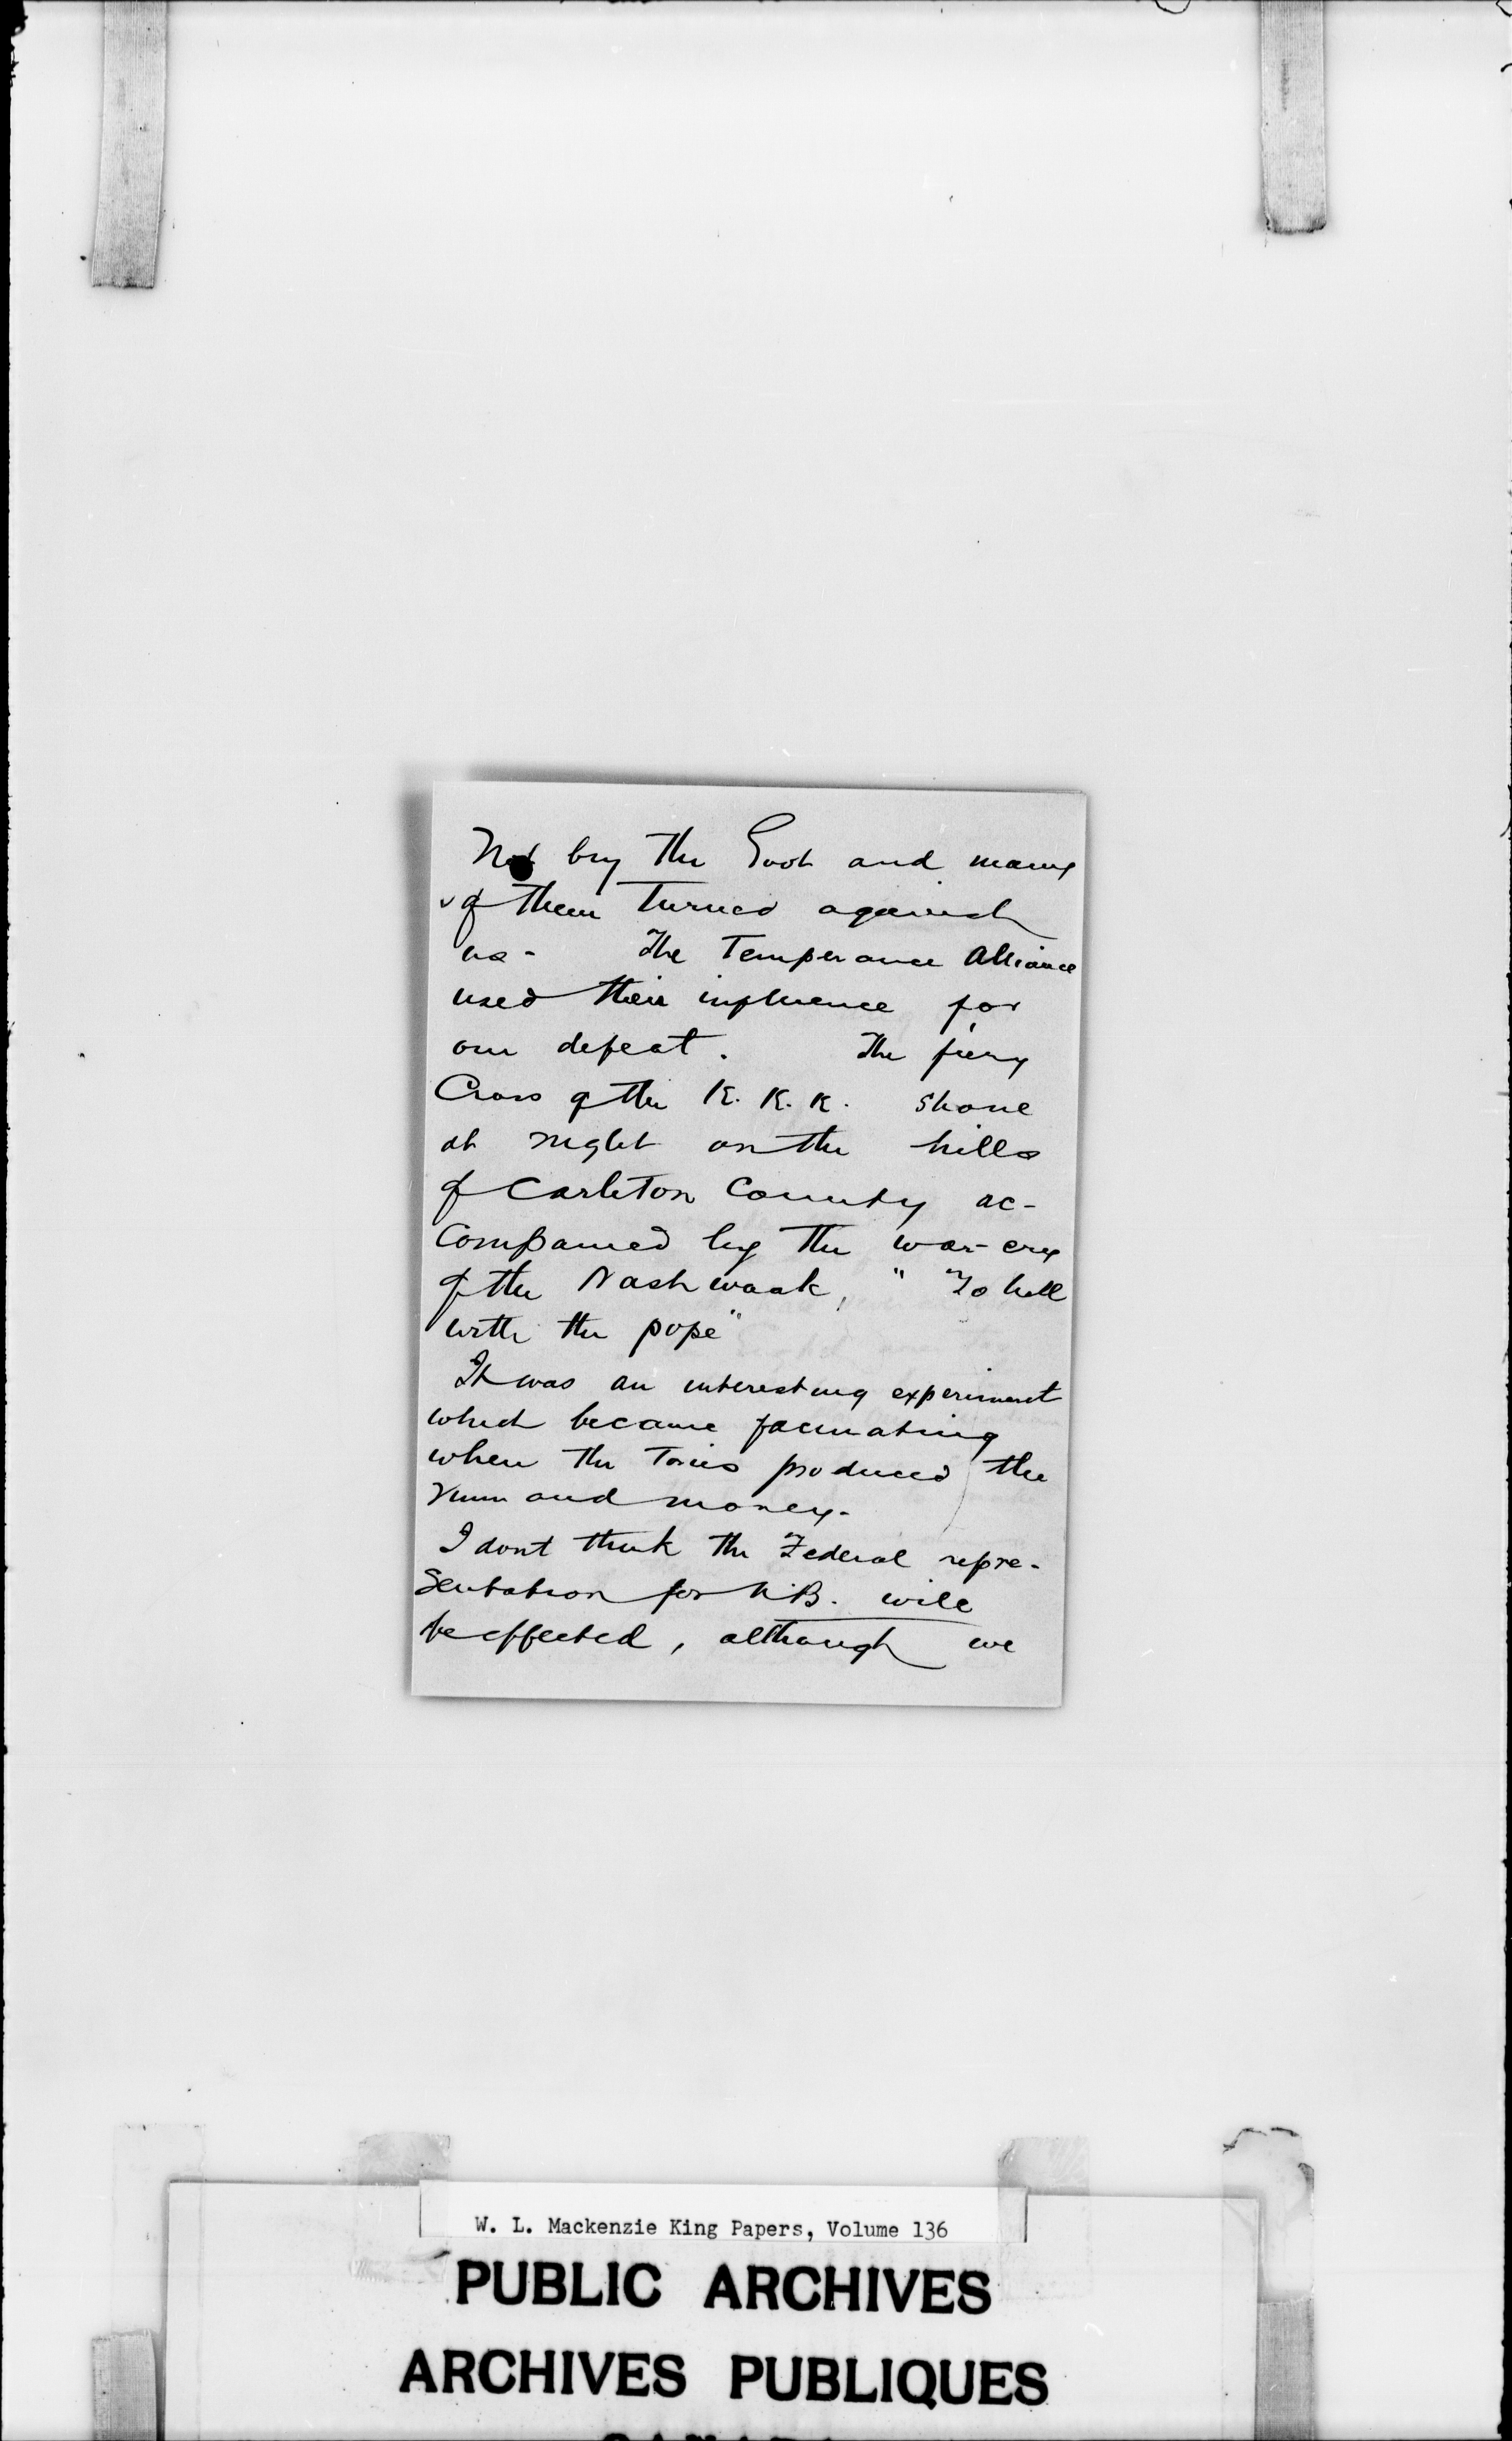 Not by the Govt and many
of them turned against
us - The Temperance Alliance
used their influence for
our defeat. The fiery
Cross of the K. K. K. shone
at night on the hills
of Carleton County ac-
companied by the war-cry
of the Nashwaak, " To hell
with the pope"
It was an interesting experiment
which became facinating
when the Tories produced the
rum and money.
I dont think the Federal repre-
sentation for N.B. will
be effected, although we
W. L. Mackenzie King Papers, Volume 136
PUBLIC ARCHIVES
ARCHIVES PUBLIQUES